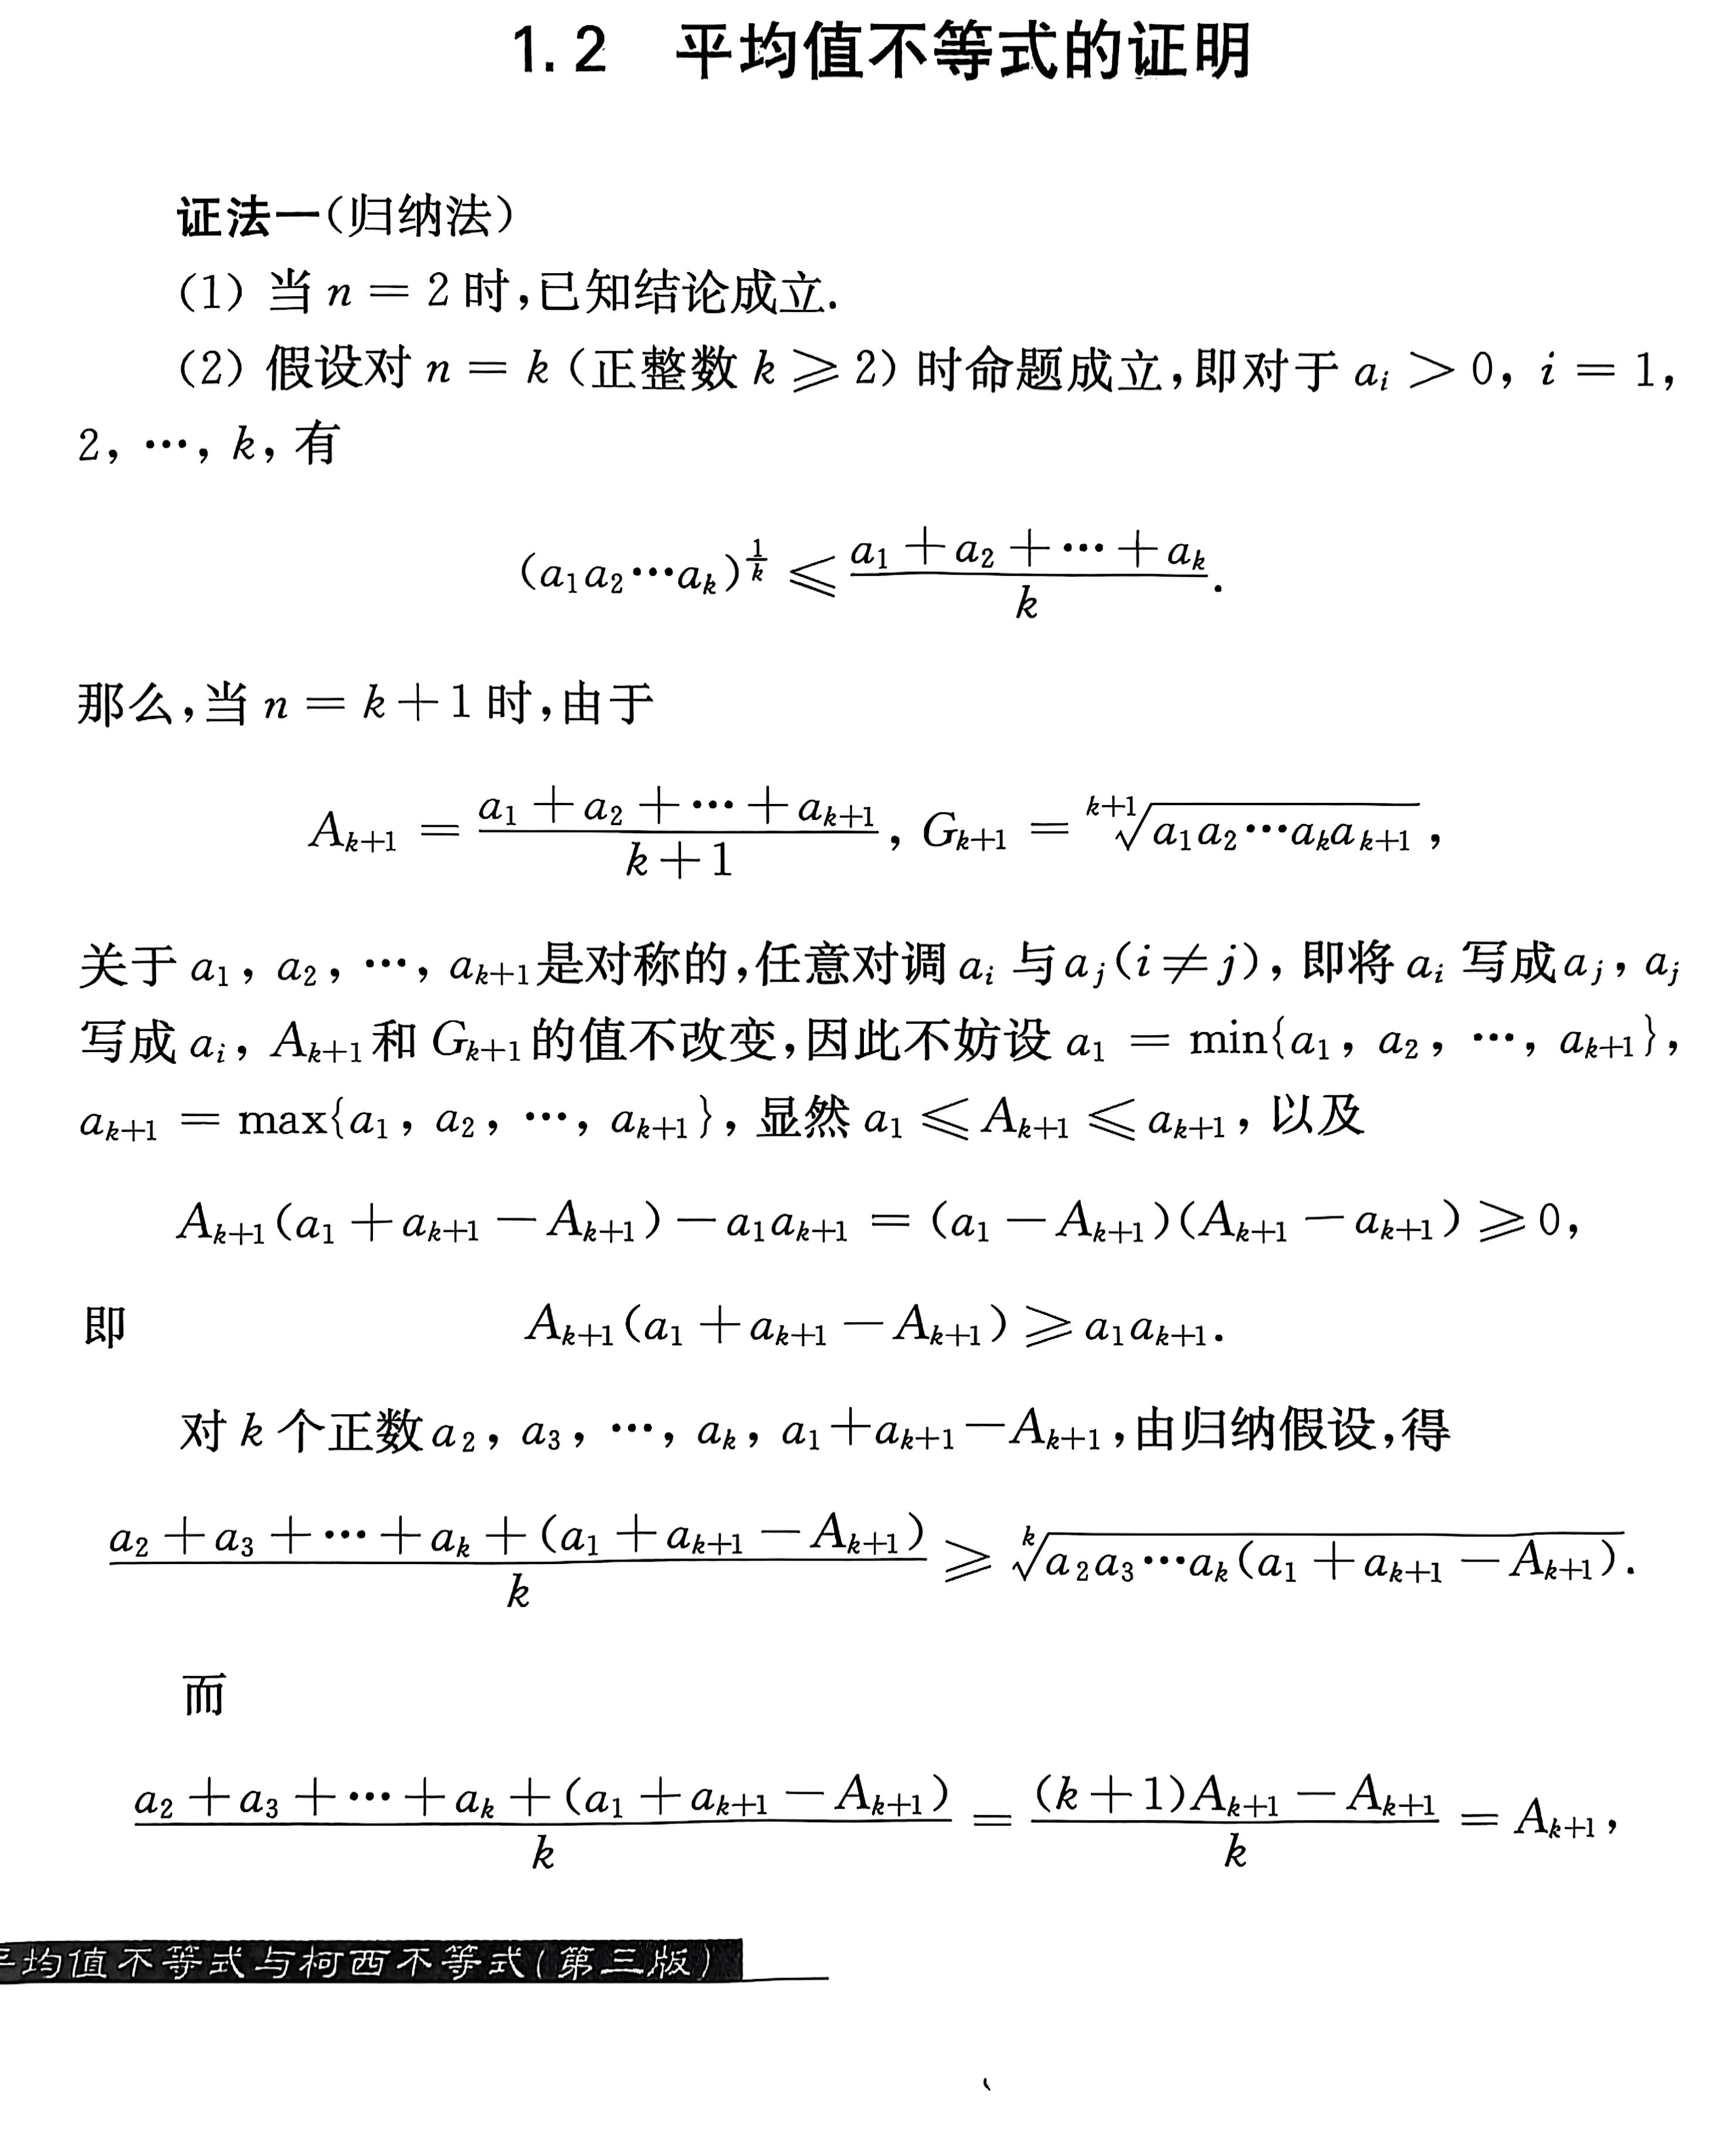 1.2 平均值不等式的证明
证法一(归纳法)
(1) 当 n = 2 时,已知结论成立.
(2) 假设对 n = k (正整数 k ⩾ 2) 时命题成立,即对于 a_i > 0, i = 1,
2, …, k, 有
(a_1a_2…a_k)^{\frac{1}{k}} ⩽ \frac{a_1 + a_2 + … + a_k}{k}.
那么,当 n = k + 1 时,由于
A_{k+1} = \frac{a_1 + a_2 + … + a_{k+1}}{k + 1}, G_{k+1} = \sqrt[k+1]{a_1a_2…a_ka_{k+1}},
关于 a_1, a_2, …, a_{k+1} 是对称的,任意对调 a_i 与 a_j (i ≠ j), 即将 a_i 写成 a_j, a_j
写成 a_i, A_{k+1} 和 G_{k+1} 的值不改变,因此不妨设 a_1 = min{a_1, a_2, …, a_{k+1}},
a_{k+1} = max{a_1, a_2, …, a_{k+1}}, 显然 a_1 ⩽ A_{k+1} ⩽ a_{k+1}, 以及
A_{k+1}(a_1 + a_{k+1} − A_{k+1}) − a_1a_{k+1} = (a_1 − A_{k+1})(A_{k+1} − a_{k+1}) ⩾ 0,
即 A_{k+1}(a_1 + a_{k+1} − A_{k+1}) ⩾ a_1a_{k+1}.
对 k 个正数 a_2, a_3, …, a_k, a_1 + a_{k+1} − A_{k+1}, 由归纳假设,得
\frac{a_2 + a_3 + … + a_k + (a_1 + a_{k+1} − A_{k+1})}{k} ⩾ \sqrt[k]{a_2a_3…a_k(a_1 + a_{k+1} − A_{k+1})}.
而
\frac{a_2 + a_3 + … + a_k + (a_1 + a_{k+1} − A_{k+1})}{k} = \frac{(k + 1)A_{k+1} − A_{k+1}}{k} = A_{k+1},
平均值不等式与柯西不等式(第三版)